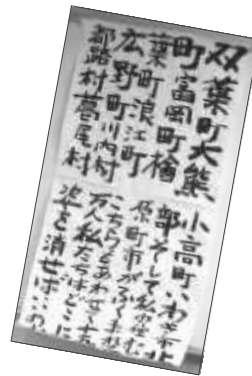 双葉町大熊
町富岡町楢
葉町浪江町
広野町川内村
都路村葛尾村
小高町、いわき北
部そして私の住む
原町市がふくまれ
こちらとあわせて
万人私たちはどこに
姿を消せば…の